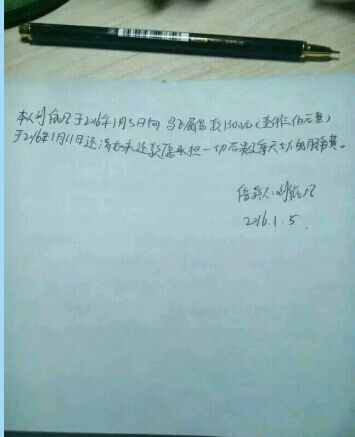 本人刘航凡于2016年1月5日向 马飞属借款1300元(壹仟三佰元整)
于2016年1月11日还清若未还款愿承担一切后果(每天5%的服务费。
借款人:刘航凡
2016.1.5